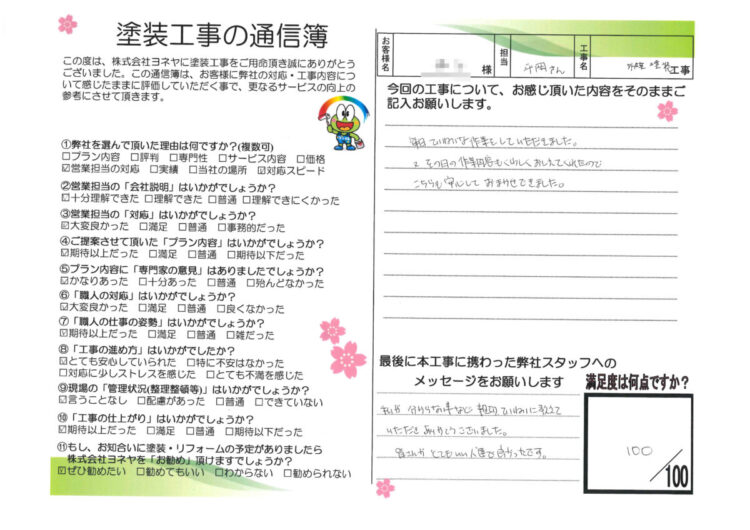 塗装工事の通信簿
この度は、株式会社ヨネヤに塗装工事をご用命頂き誠にありがとう
ございました。この通信簿は、お客様に弊社の対応・工事内容につ
いて感じたままに評価していただく事で、更なるサービスの向上の
参考にさせて頂きます。
①弊社を選んで頂いた理由は何ですか?(複数可)
□プラン内容 □評判 □専門性 □サービス内容 □価格
☑営業担当の対応 □実績 □当社の場所 ☑対応スピード
②営業担当の「会社説明」はいかがでしょうか?
☑十分理解できた □理解できた □普通 □理解できにくかった
③営業担当の「対応」はいかがでしょうか?
☑大変良かった □満足 □普通 □事務的だった
④ご提案させて頂いた「プラン内容」はいかがでしょうか?
☑期待以上だった □満足 □普通 □期待以下だった
⑤プラン内容に「専門家の意見」はありましたでしょうか?
☑かなりあった □十分あった □普通 □殆んどなかった
⑥「職人の対応」はいかがでしょうか?
☑大変良かった □満足 □普通 □良くなかった
⑦「職人の仕事の姿勢」はいかがでしょうか?
☑期待以上だった □満足 □普通 □雑だった
⑧「工事の進め方」はいかがでしたか?
☑とても安心していられた □特に不安はなかった
□対応に少しストレスを感じた □とても不満を感じた
⑨現場の「管理状況(整理整頓等)」はいかがでしょうか?
☑言うことなし □配慮があった □普通 □できていない
⑩「工事の仕上がり」はいかがでしょうか?
☑期待以上だった □満足 □普通 □期待以下だった
⑪もし、お知合いに塗装・リフォームの予定がありましたら
株式会社ヨネヤを「お勧め」頂けますでしょうか?
☑ぜひ勧めたい □勧めてもいい □わからない □勧められない
お客様名 様 担当 さん 工事名 塗装工事
今回の工事について、お感じ頂いた内容をそのままご
記入お願いします。
毎日ていねいな作業をしていただきました。
その日の作業内容もくわしくおしえてくれたので
こちらも安心しておまかせできました。
最後に本工事に携わった弊社スタッフへの
メッセージをお願いします
私が分からない事など親切ていねいに教えて
いただきありがとうございました。
皆さんがとてもいい人達で良かったです。
満足度は何点ですか?
100
/100